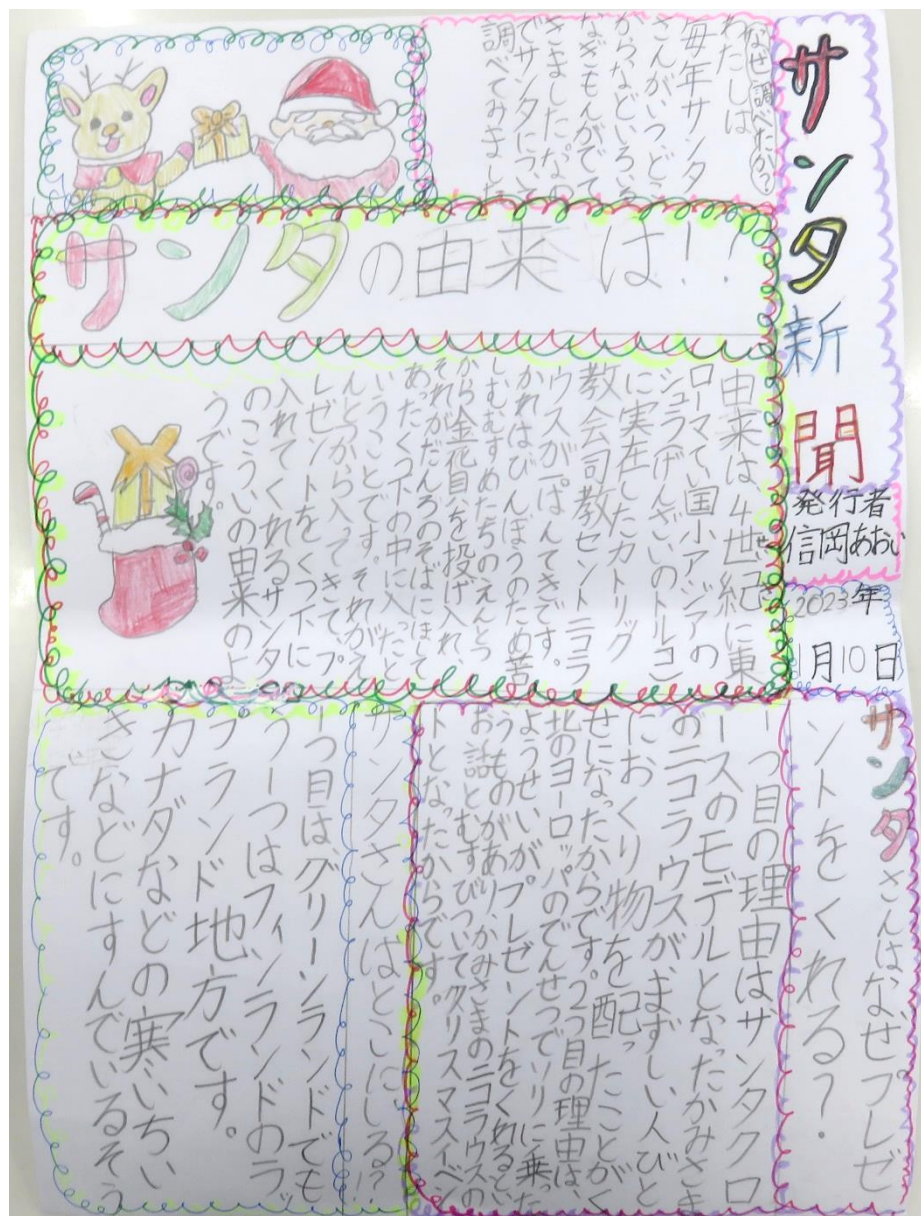 サンタ新聞
発行者
信岡あおい
2023年
1月10日
なぜ調べたか?
わたしは
毎年サンタ
さんがいつ、どこ
から、などいろいろ
なぎもんがでて
きました。なの
でサンタについて
調べてみました
サンタの由来は!!
由来は4世紀に東
ローマてい国小アジアの
シュラげんざいのトルコ
に実在したカトリック
教会司教セントニコラ
ウスが一ぱんてきです。
かれはびんぼうのため苦
しむむすめたちのえんとつ
から金花貝を投げ入れ、
それがだんろのそばにほして
あったくつ下の中に入ったと
いうことです。それがえ
んとつから入ってきてプ
レゼントをくつ下に
入れてくれるサンタ
のこういの由来のよ
うです。
サンタさんはなぜプレゼ
ントをくれる?
一つ目の理由はサンタクロ
ースのモデルとなったかみさま
のニコラウスがまずしい人びと
におくり物を配ったことがく
せになったからです。2つ目の理由は、
北のヨーロッパのでんせつでソリに乗った
ようせいがプレゼントをくれるとい
うものがあり、かみさまのニコラウスの
お話とむすびついてクリスマスイベン
トとなったからです。
サンタさんはどこにいる?!
1つ目はグリーンランドでも
う一つはフィンランドのラッ
プランド地方です。
カナダなどの寒いちい
きなどにすんでいるそう
です。